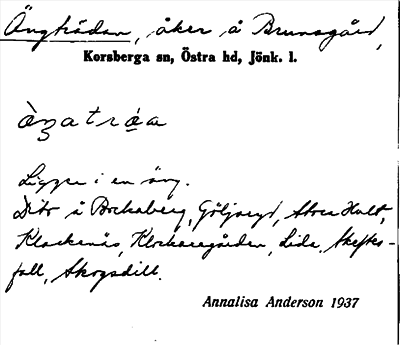 Ängträdan, åker å Brunsgård,
Korsberga sn, Östra hd, Jönk. l.
àŋatrá̱a
Ligger i en äng.
Ditto å Bockaberg, Göljaryd, Stora Hult,
Klackenäs, Klockaregården, Lida, Skefte-
fall, Skogsdill.
Annalisa Anderson 1937